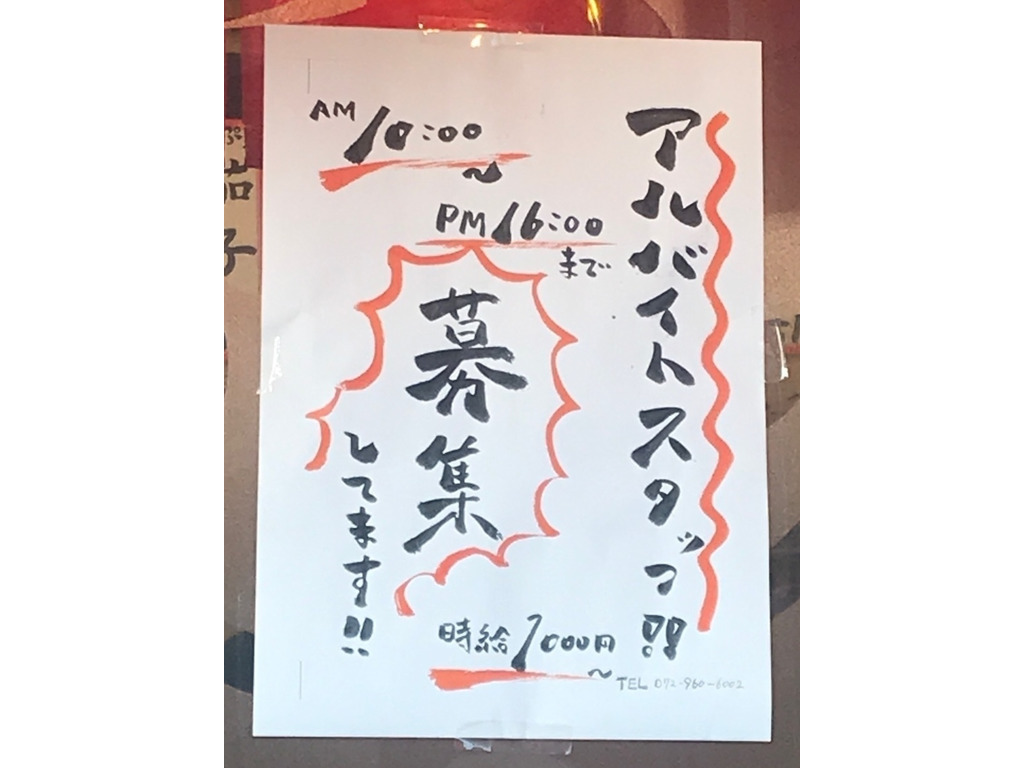 アルバイトスタッフ!!
AM 10:00
～
PM 16:00
まで
募集
してます!!
時給 1000円
～
TEL 072-960-6002
茄子